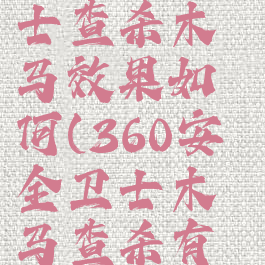 士查杀木
马效果如
何(360安
全卫士木
马查杀有